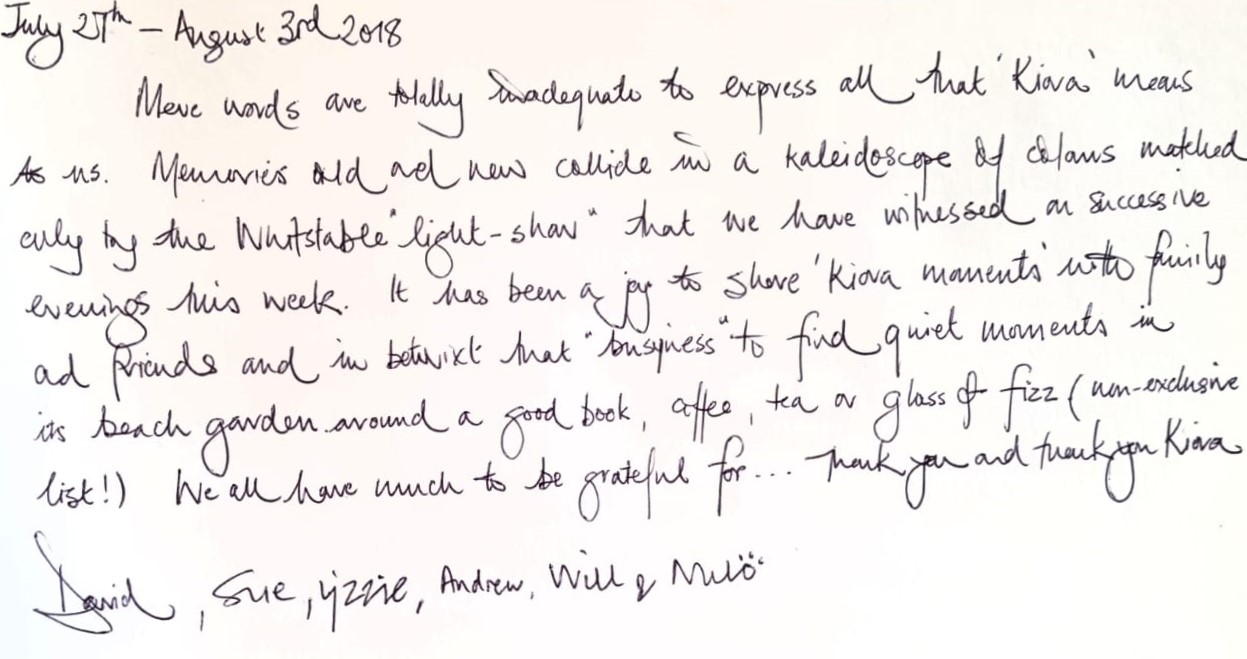 July 27th - August 3rd 2018
Mere words are totally inadequate to express all that 'Kiova' means
to us. Memories old and new collide in a kaleidoscope of colours matched
only by the Whitstable "light-show" that we have witnessed on successive
evenings this week. It has been a joy to share 'Kiova moments' with family
and friends and in betwixt that "busyness" to find quiet moments in
its beach garden around a good book, coffee, tea or glass of fizz (non-exclusive
list!) We all have much to be grateful for... Thank you and thank you Kiova
David, Sue, Lizzie, Andrew, Will &